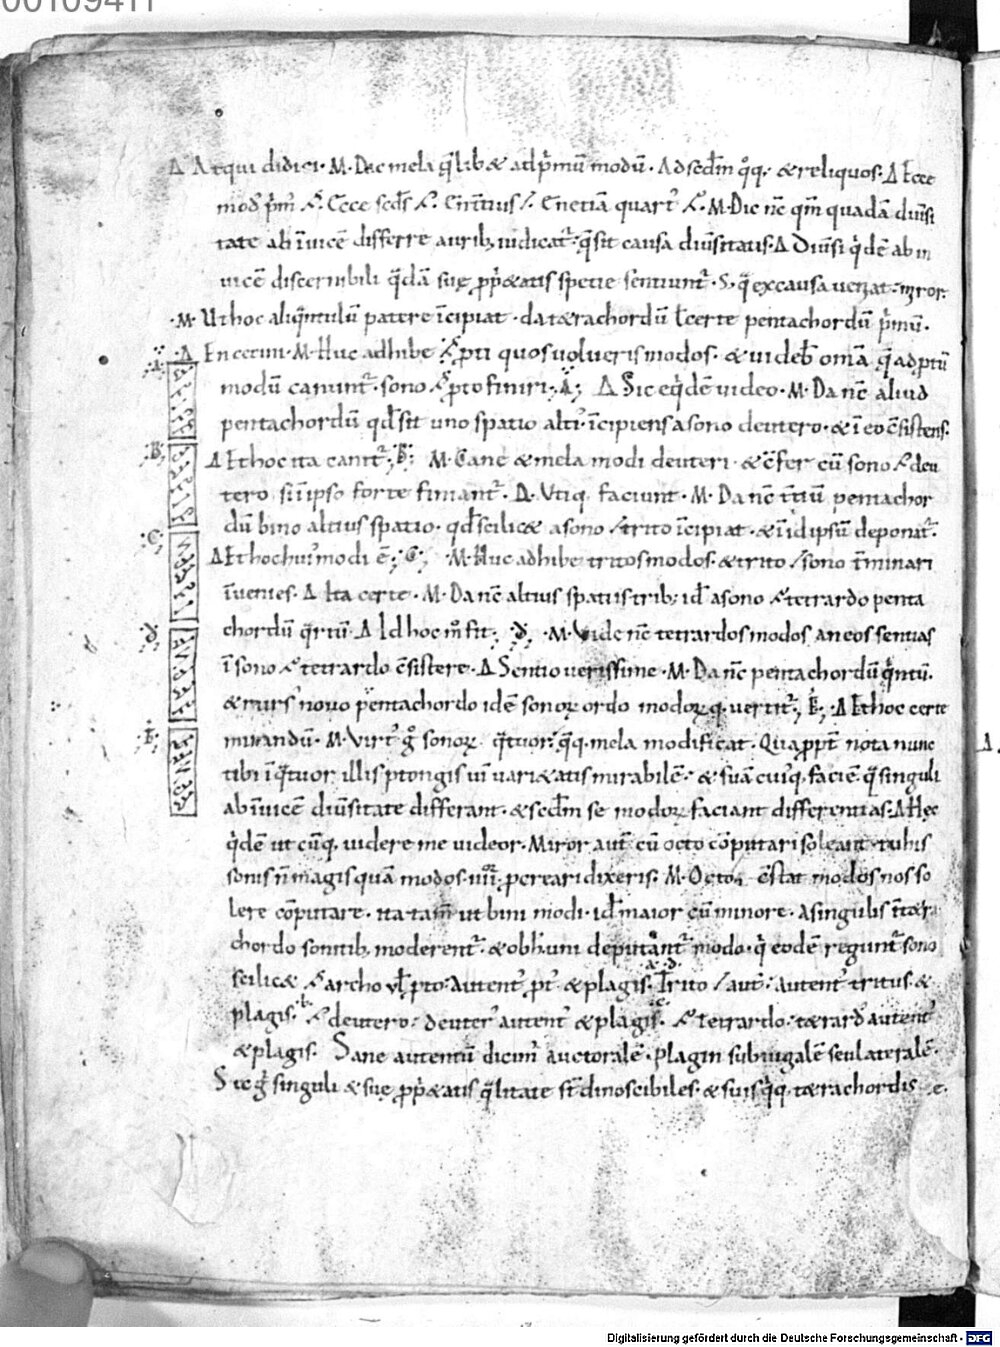 00109411
Δ Atqui didici · M · Dic mela q̄lib& ad p̄mū modū · Ad scd̄m q̊q · & reliquos · Δ Ecce
mod p̄m Ecce scd̄s Cn̄ &iā quart M · Dic nc̄ qm̄ quadā diūsi
tate ab īuicē differre aurib; iudicat̄ · q̄ sit causa diūsitatis · Δ Diūsi q̇dē ab in
uicē discernibili q̄dā suę ꝓp&atis specie sentiunt̄ · S; q̄ ex causa ueniat miror
· M · Ut hoc aliq̄ntulū patere īcipiat · da t&rachordū l̄ certe pentachordū p̄mū ·
· Δ En cecini · M · Huc adhibe ꝓti quos uolueris modos · & uideb omā q̄ ad ptū
modū canunt̄ · sono ꝓto finiri · A · Δ Sic eq̇dē uideo · M · Da nc̄ aliud
pentachordū qd̄ sit uno spatio alti īcipiens a sono deutero · & ī eo c̄sistens ·
Δ Et hoc ita canit̄ · B · M · Cane & mela modi deuteri · & c̄fer cū sono deu
tero si ī ipso forte finiant̄ · Δ · Utiq faciunt · M · Da nc̄ t̄tiū pentachor
dū bino altius spatio · qd̄ scilic& a sono trito īcipiat · & ī id ipsū deponat̄ ·
Δ Et hoc hui modi ē · C · M · Huc adhibe tritos modos · & trito sono t̄minari
īuenies · Δ Ita certe · M · Da nc̄ altius spatiis trib; id̄ a sono tetrardo penta
chordū q̄rtū · Δ Id hoc m̊ fit · d · M · Vide nc̄ tetrardos modos an eos sentias
ī sono tetrardo c̄sistere · Δ Sentio uerissime · M · Da nc̄ pentachordū q̇ntū ·
& rurs nouo pentachordo idē sonoꝝ ordo modoꝝq uertit̄ · E · Δ Et hoc certe
mirandū · M · Virt g̊ sonoꝝ q̄tuor q̄q mela modificat · Quapp̄t nota nunc
tibi ī q̄tuor illis ptongis uī uari&atis mirabilē · & suā cuiq faciē · q̄ singuli
ab īuicē diūsitate differant · & scd̄m se modoꝝ faciant differentias · Δ Hęc
q̇dē ut cūq uidere me uideor · Miror aut cū octo cōputari soleant tubis
sonis n̄ magis quā modos · IIII · pcreari dixeris · M · Octo c̄stat modos nos so
lere cōputare · ita tam̄ ut bini modi · id̄ maior cū minore · a singulis
chordo sonitib; moderent̄ · & obhuni deputant̄ modo · q̇ eodē regunt̄ sono
scilic& archo ul̄ pto · Autent pt & plagis · Trito aut · autent tritus · &
plagis · deutero · deuter autent & plagis · tetrardo · t&rard autent
& plagis · Sane autentū dicim auctoralē · plagin subiugalē seu lateralē ·
Sic g̊ singuli & suę ꝓp&atis q̄litate st̄ dinoscibiles · & suis q̇q t&rachordis
A
B
C
d
E
Digitalisierung gefördert durch die Deutsche Forschungsgemeinschaft - DFG